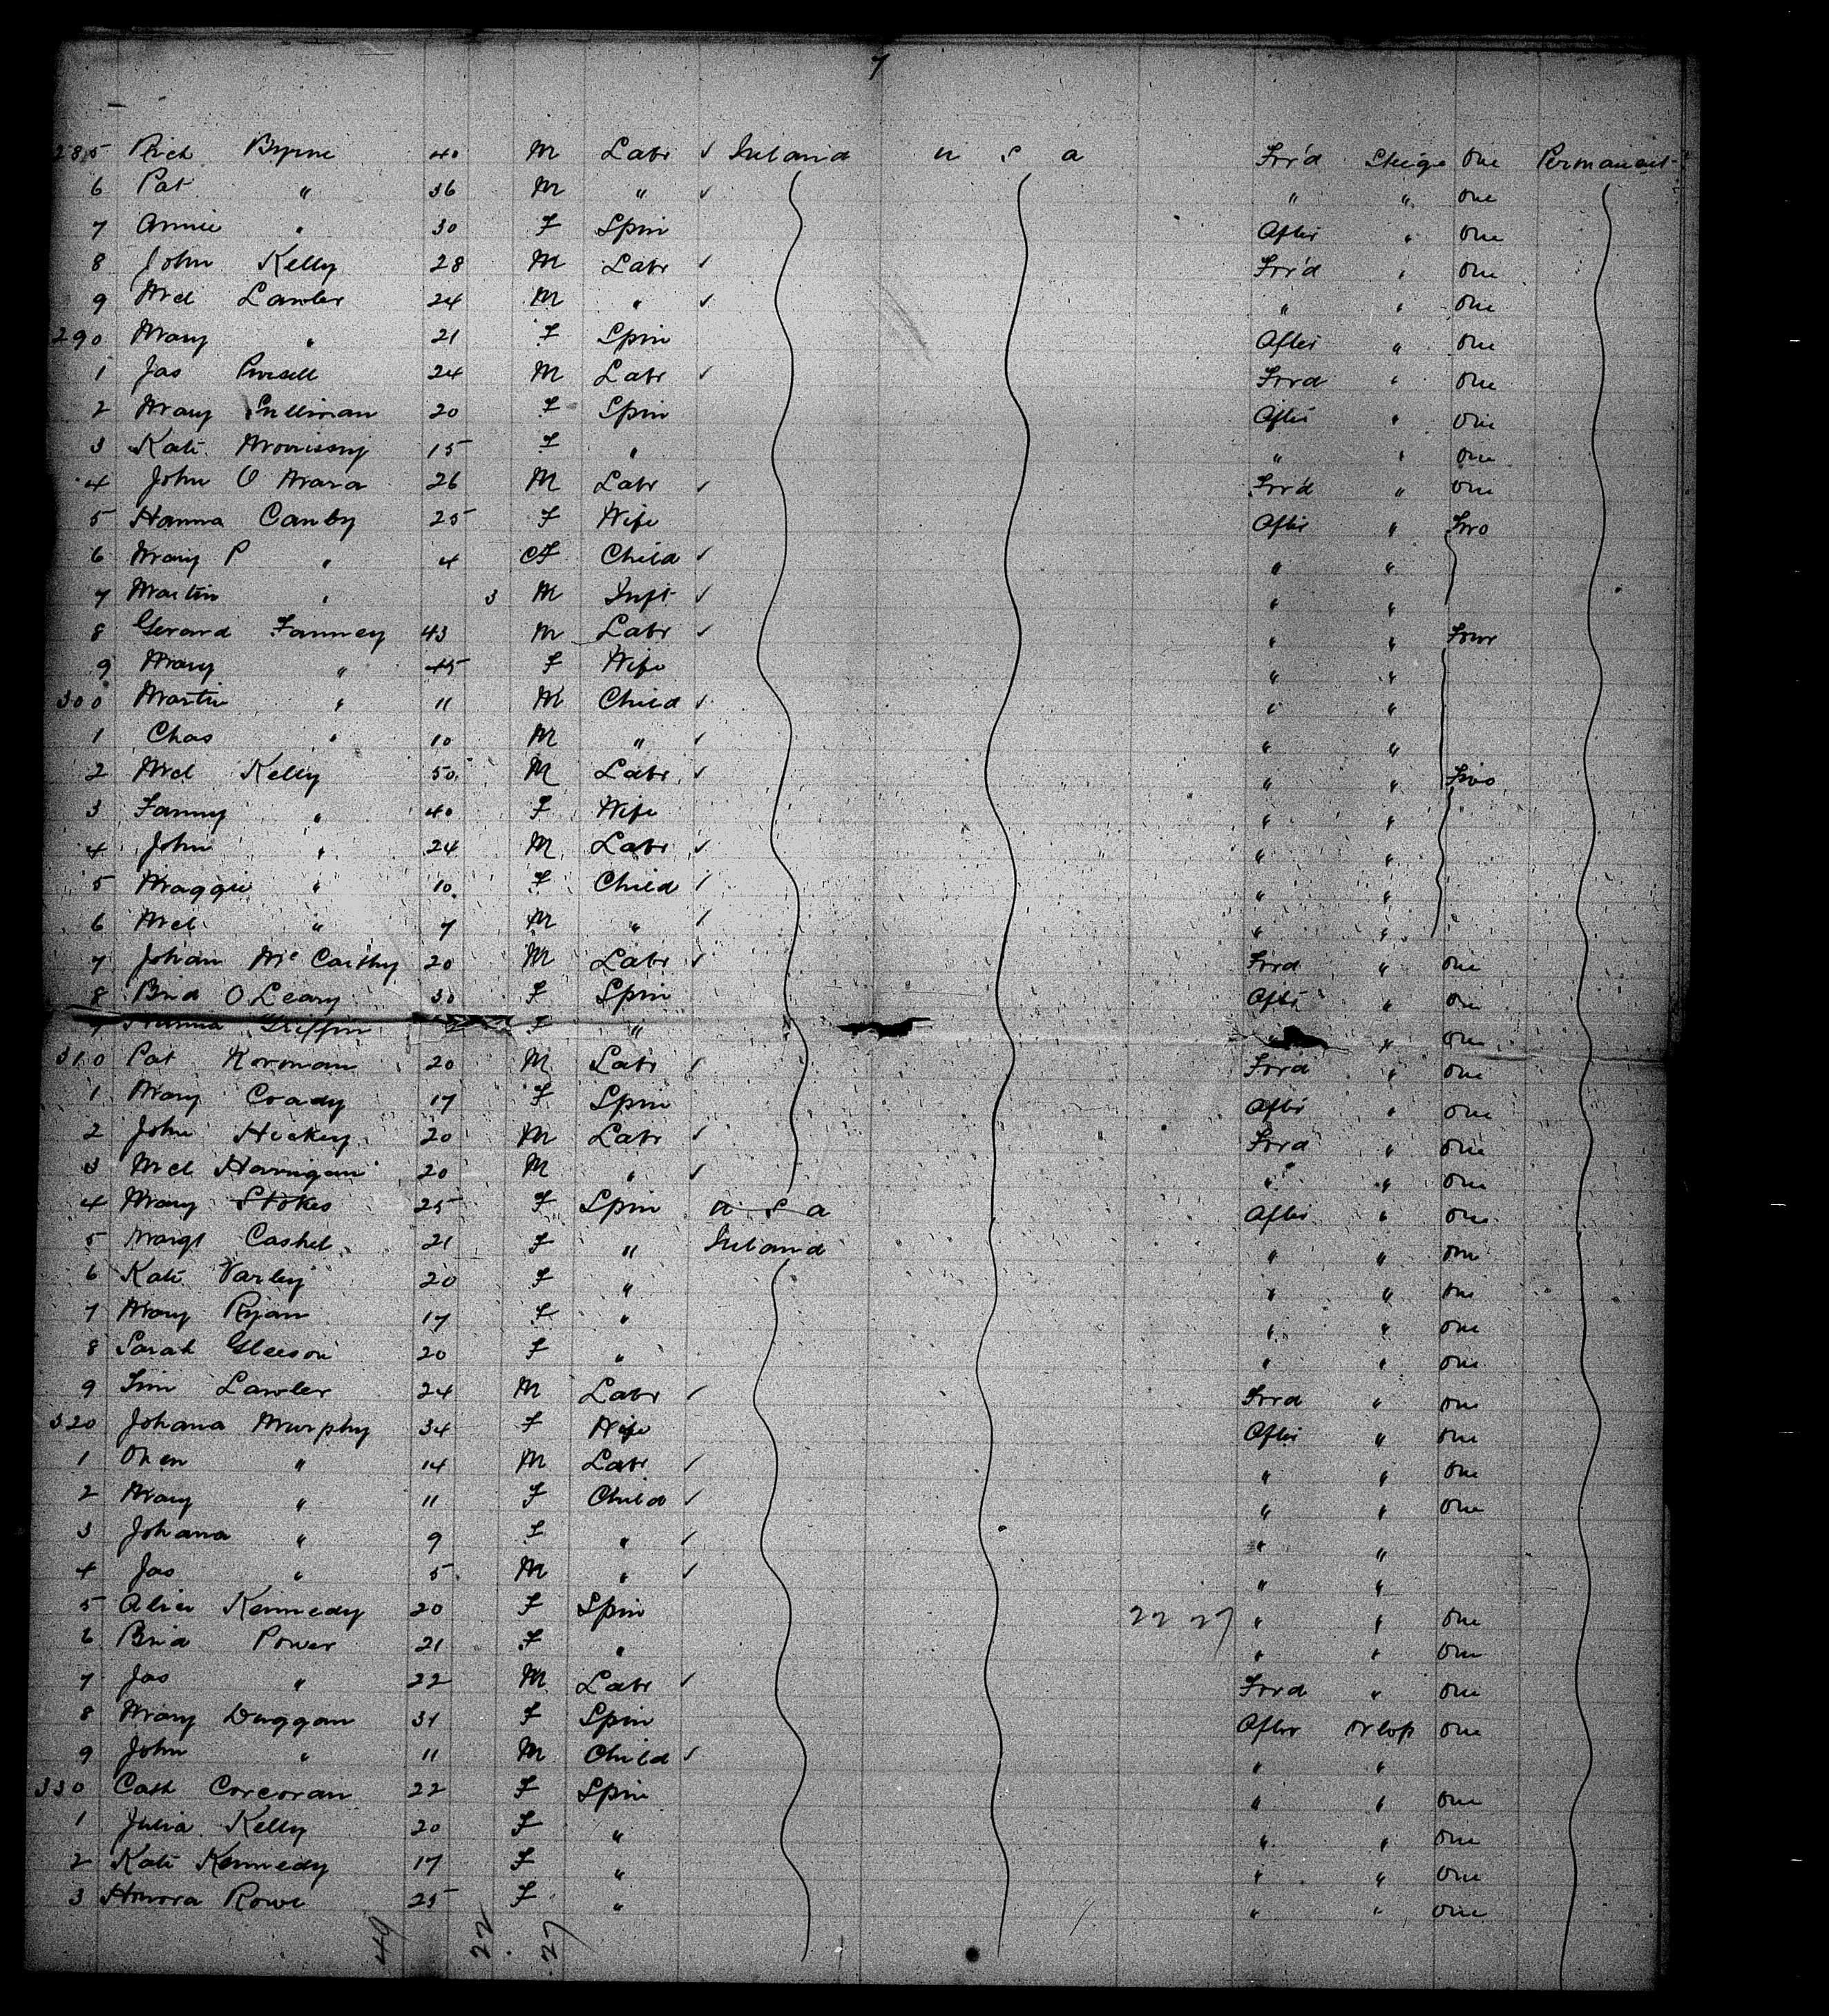 7
285 Rich Byrne 40 M Labr ✓ Ireland U S A For'd Steige One Permanent
6 Pat " 36 M " ✓ " " One
7 Annie " 30 F Spin After " One
8 John Kelly 28 M Labr ✓ For'd " One
9 Mcl Lawler 24 M " ✓ " " One
290 Mary " 21 F Spin After " One
1 Jas Pursell 24 M Labr ✓ Forrd " One
2 Mary Sullivan 20 F Spin After " One
3 Kate Morrissy 15 F " " " One
4 John O Mara 26 M Labr ✓ For'd " One
5 Hanna Canby 25 F Wife After " Two
6 Mary P " 4 F Child ✓ " "
7 Martin " 3 M Inft ✓ " "
8 Gerard Fanney 43 M Labr ✓ " " Four
9 Mary " 45 F Wife " "
300 Martin " 11 M Child ✓ " "
1 Chas " 10 M " ✓ " "
2 Mcl Kelly 50 M Labr ✓ " " Two
3 Fanny " 40 F Wife " "
4 John " 24 M Labr ✓ " "
5 Maggie " 10 F Child ✓ " "
6 Mcl " 7 M " ✓ " "
7 Johan McCarthy 20 M Labr ✓ Forrd " One
8 Brid O Leary 30 F Spin After " One
9 Hanna Griffin F " " One
310 Pat Norman 20 M Labr ✓ Forrd " One
1 Mary Coady 17 F Spin After " One
2 John Hickey 20 M Labr ✓ Forrd " One
3 Mcl Hannigan 20 M " ✓ " " One
4 Mary Stokes 25 F Spin U S A After " One
5 Margt Cashel 21 F " Ireland " " One
6 Kate Varley 20 F " " " One
7 Mary Ryan 17 F " " " One
8 Sarah Gleeson 20 F " " " One
9 Tim Lawler 24 M Labr ✓ Forrd " One
320 Johana Murphy 34 F Wife After " One
1 Owen " 14 M Labr ✓ " " One
2 Mary " 11 F Child ✓ " " One
3 Johana " 9 F " ✓ " "
4 Jas " 5 M " ✓ " "
5 Alice Kennedy 20 F Spin 22 27 " " One
6 Brid Power 21 F " " " One
7 Jas " 22 M Labr ✓ Forrd " One
8 Mary Duggan 31 F Spin After Orlop One
9 John " 11 M Child ✓ " "
330 Cath Corcoran 22 F Spin " " One
1 Julia Kelly 20 F " " " One
2 Kate Kennedy 17 F " " " One
3 Honora Rowe 25 F " " " One
49 22 27